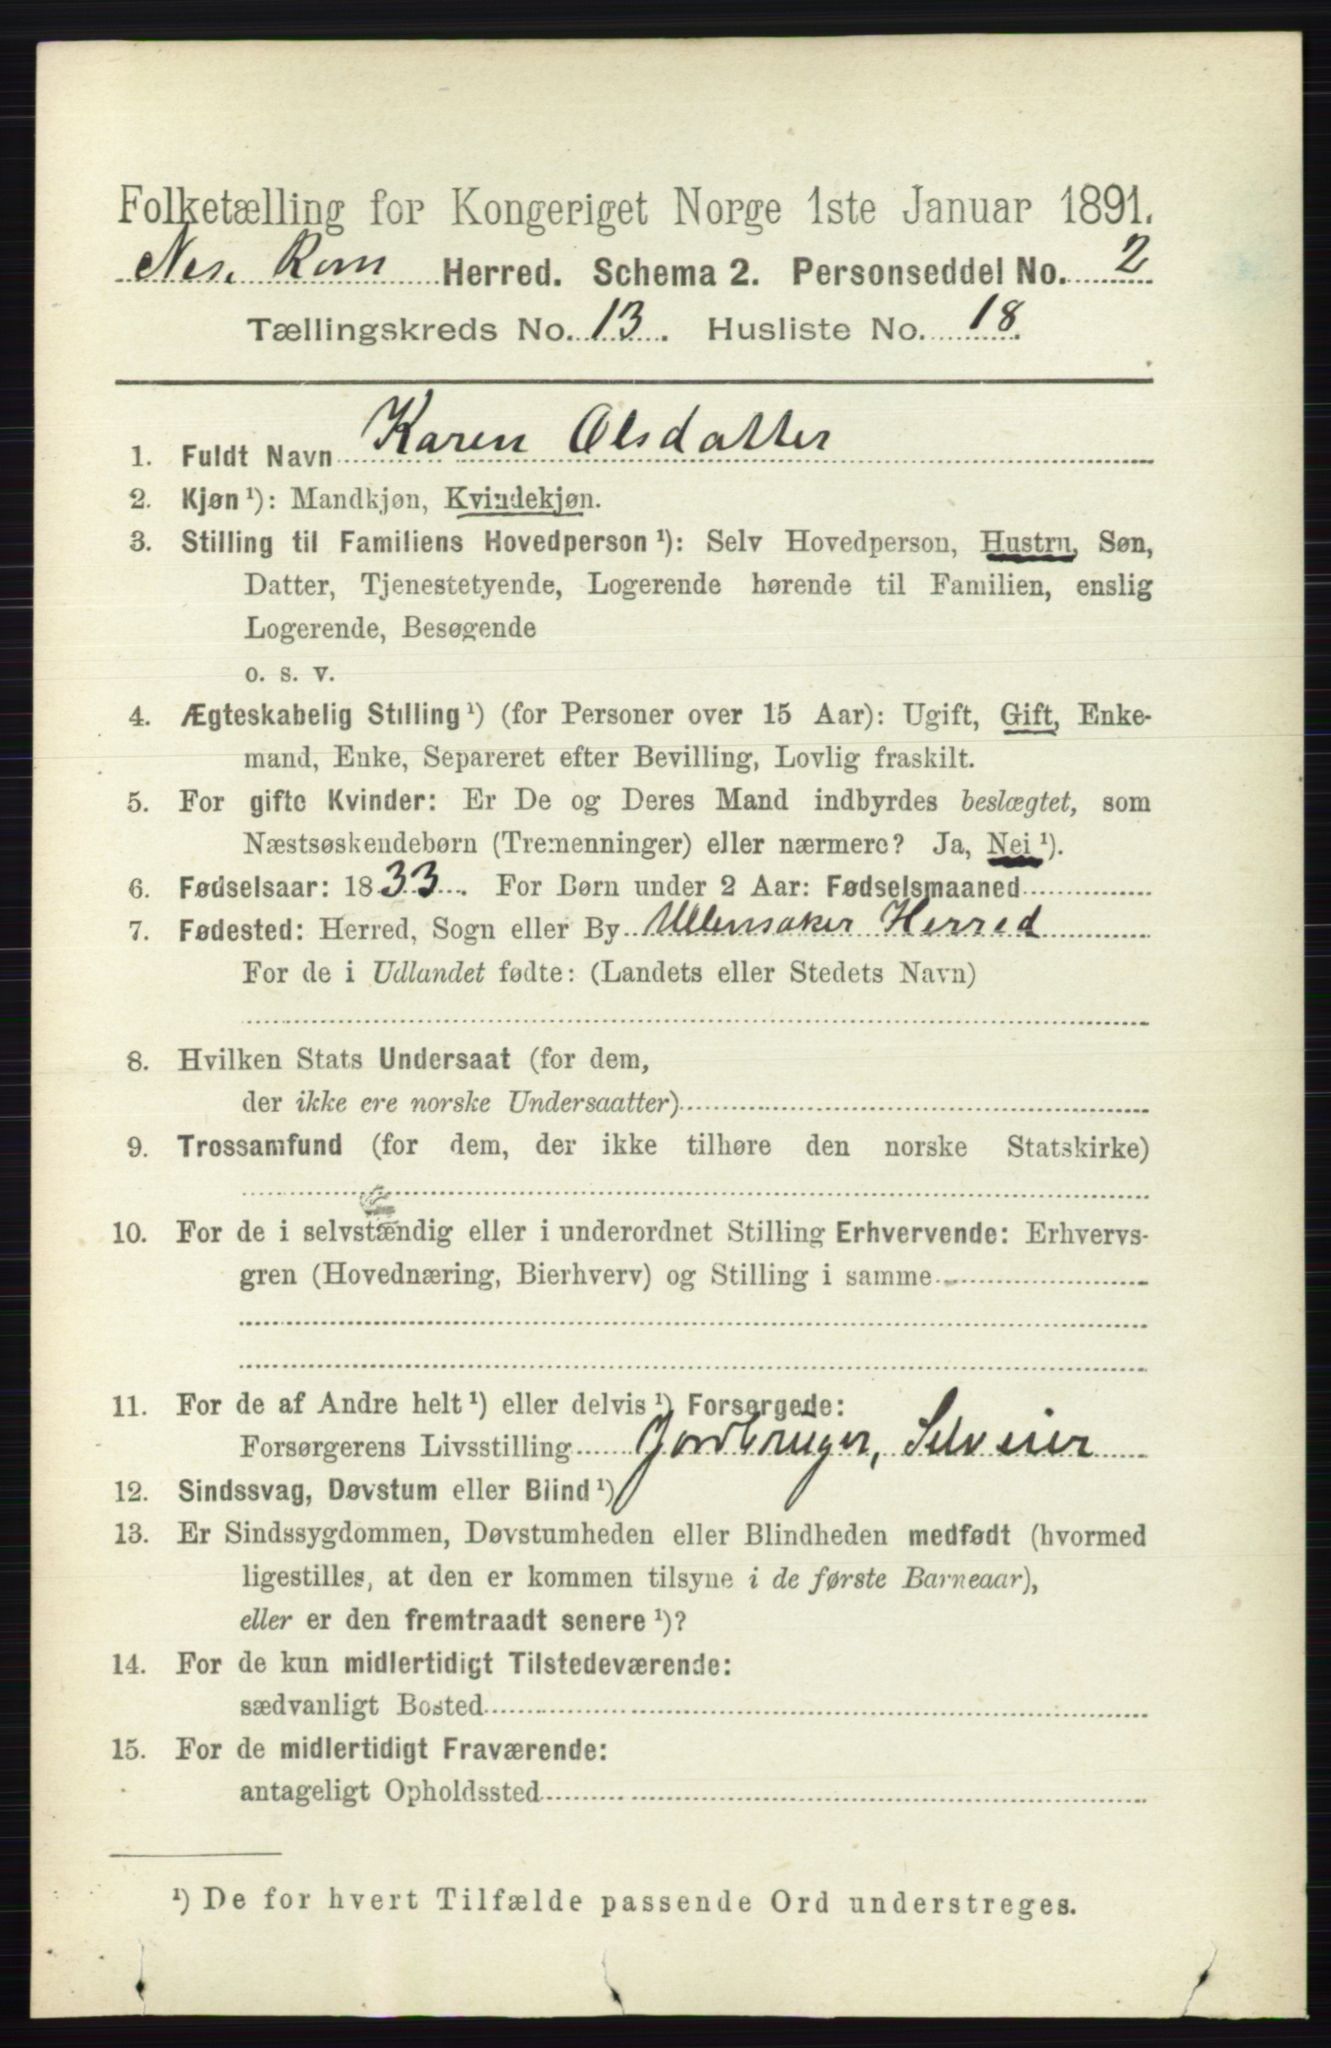 Folketælling for Kongeriget Norge 1ste Januar 1891.
Nes. Rom Herred. Schema 2. Personseddel No. 2
Tællingskreds No. 13. Husliste No. 18.
1. Fuldt Navn Karen Olsdatter
2. Kjøn ¹): Mandkjøn, Kvindekjøn.
3. Stilling til Familiens Hovedperson ¹): Selv Hovedperson, Hustru, Søn,
Datter, Tjenestetyende, Logerende hørende til Familien, enslig
Logerende, Besøgende
o. s. v.
4. Ægteskabelig Stilling ¹) (for Personer over 15 Aar): Ugift, Gift, Enke-
mand, Enke, Separeret efter Bevilling, Lovlig fraskilt.
5. For gifte Kvinder: Er De og Deres Mand indbyrdes beslægtet, som
Næstsøskendebørn (Tremenninger) eller nærmere? Ja, Nei ¹).
6. Fødselsaar: 1833. For Børn under 2 Aar: Fødselsmaaned
7. Fødested: Herred, Sogn eller By Ullensaker Herred
For de i Udlandet fødte: (Landets eller Stedets Navn)
8. Hvilken Stats Undersaat (for dem,
der ikke ere norske Undersaatter)
9. Trossamfund (for dem, der ikke tilhøre den norske Statskirke)
10. For de i selvstændig eller i underordnet Stilling Erhvervende: Erhvervs-
gren (Hovednæring, Bierhverv) og Stilling i samme
11. For de af Andre helt ¹) eller delvis ¹) Forsørgede:
Forsørgerens Livsstilling Jordbruger, Selveier
12. Sindssvag, Døvstum eller Blind ¹)
13. Er Sindssygdommen, Døvstumheden eller Blindheden medfødt (hvormed
ligestilles, at den er kommen tilsyne i de første Barneaar),
eller er den fremtraadt senere ¹)?
14. For de kun midlertidigt Tilstedeværende:
sædvanligt Bosted
15. For de midlertidigt Fraværende:
antageligt Opholdssted
¹) De for hvert Tilfælde passende Ord understreges.